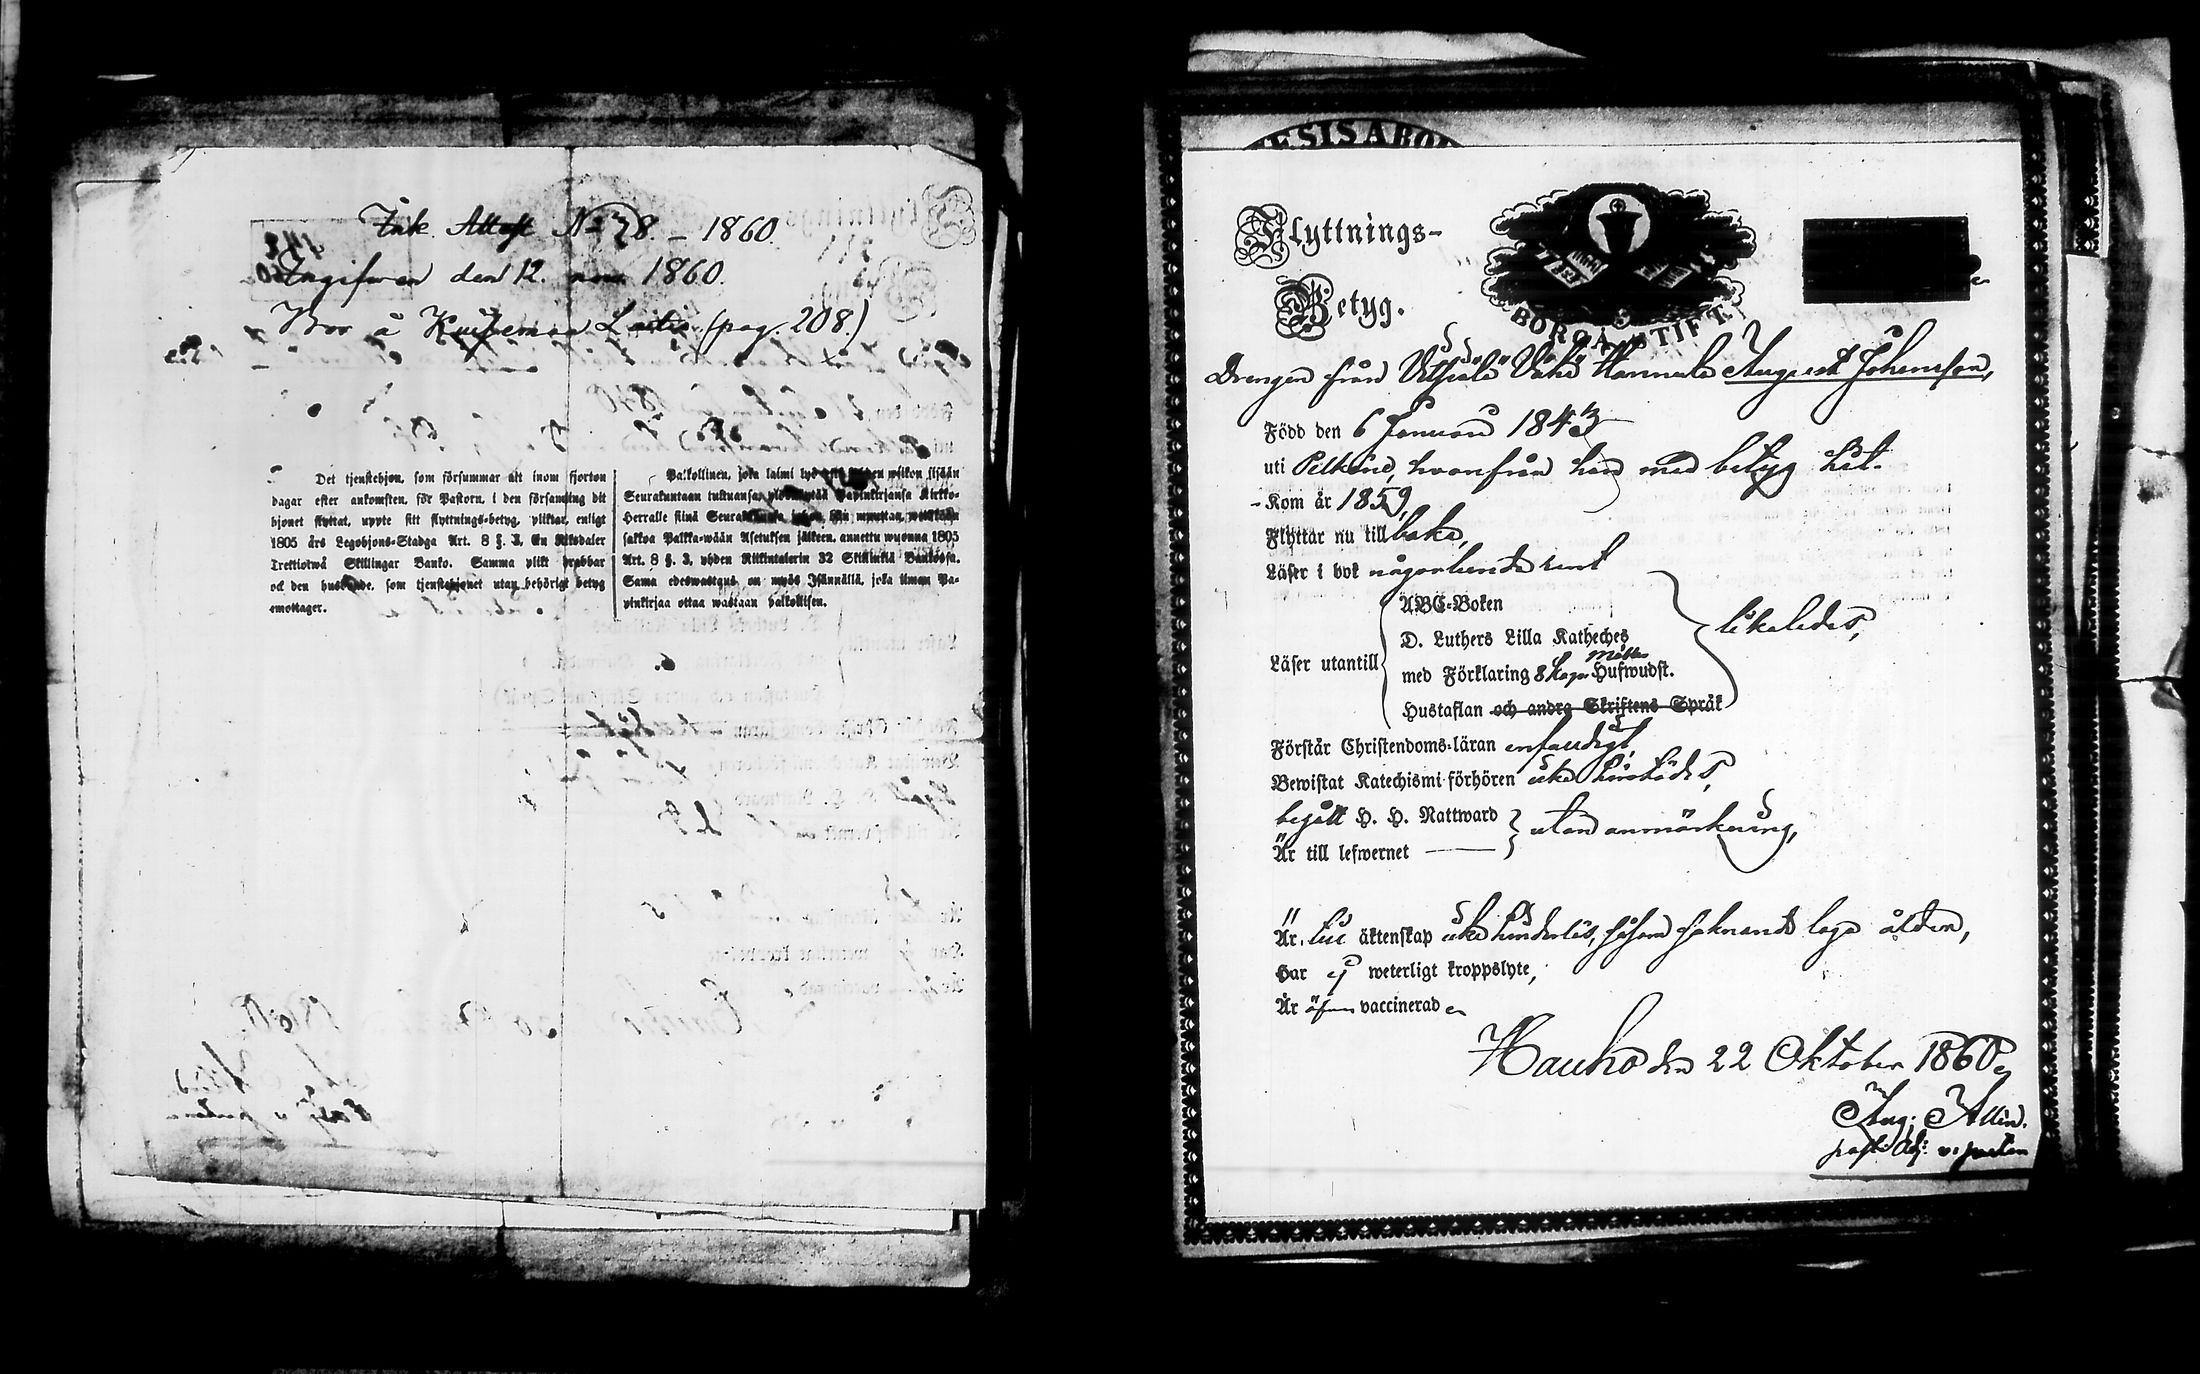 Ink. Attest No 78. – 1860.
Ingifven den 12. nov. 1860.
Bor å (pag. 208.)
Det tjenstehjon, som försummar att inom fjorton
dagar efter ankomsten, för Pastorn, i den församling dit
hjonet flyttat, uppte sitt flyttnings-betyg, pliktar, enligt
1805 års Legohjons-Stadga Art. 8 §. 3, En Riksdaler
Trettiotwå Skillingar Banko. Samma plikt drabbar
ock den husbonde, som tjenstehjonet utan behörigt betyg
emottager.
Palkollinen, joka laimi lyö wiikon sisään
Seurakuntaan tultuansa papinkirjansa Kirkko-
Herralle siinä muuttan,
sakkoa Palkka-wään Asetuksen jälkeen, annettu wuonna 1805
Art. 8 §. 3, yhden Riikintalerin 32 Skillinkiä Bankossa.
Sama edeswastaus on myös Isännällä, joka ilman Pa-
pinkirjaa ottaa wastaan palkollisen.
ESIS ABO
Flyttnings-
Betyg.
BORGÅ STIFT.
Drengen från August Johansson,
Född den 6 Januari 1843
uti Pelkäne, hvarifrån han med betyg hit-
-Kom år 1859,
Flyttar nu till baka,
Läser i bok någorlunda rent
Läser utantill
ABC-Boken
D. Luthers Lilla Katheches
med Förklaring Hufwudst.
Hustaflan och andra Skriftens Språk
likaledes,
Förstår Christendoms-läran enfaldigt,
Bewistat Katechismi förhören icke
begått H. H. Nattward
Är till lefwernet
utan anmärkning,
Är till äktenskap icke hinderlös, såsom saknande laga ålder,
Har ej weterligt kroppslyte,
Är äfven vaccinerad
Hauho den 22 Oktober 1860
Aug. Allén.
past. Adj.